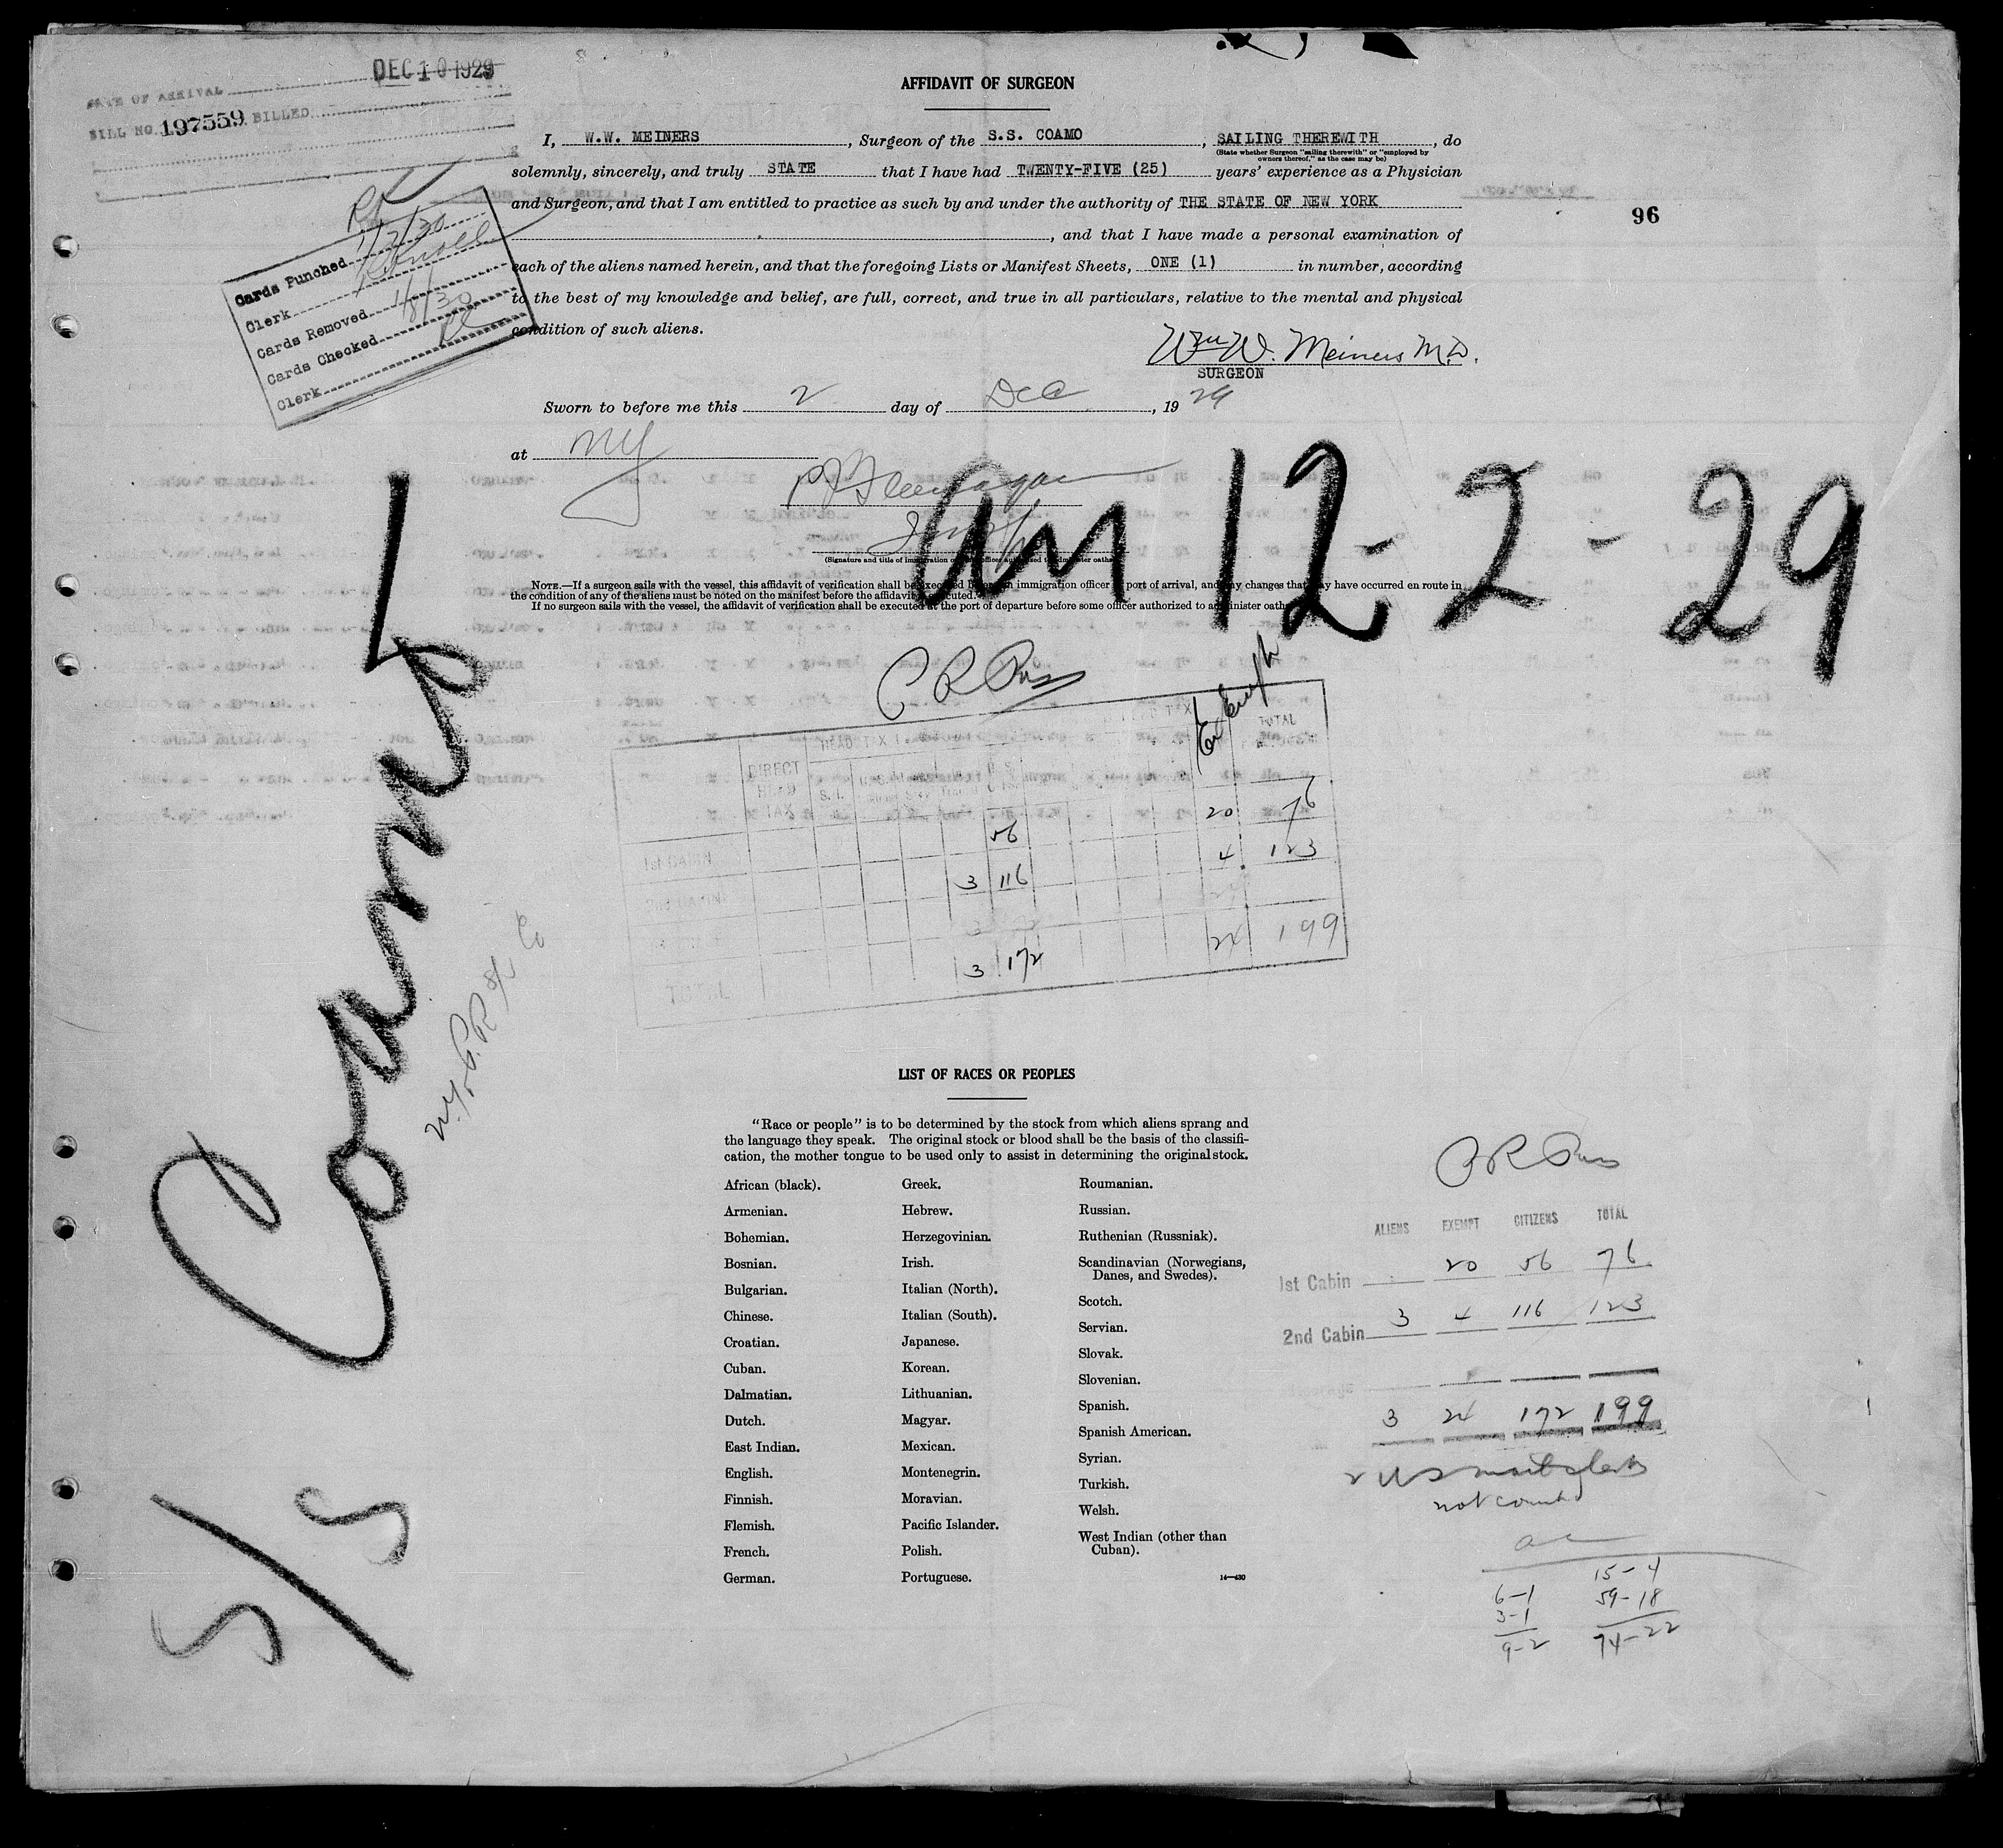 DEC 10 1929
DATE OF ARRIVAL
BILL NO. 197559 BILLED
AFFIDAVIT OF SURGEON
I, W.W. MEINERS, Surgeon of the S.S. COAMO, SAILING THEREWITH, do
(State whether Surgeon "sailing therewith" or "employed by
owners thereof," as the case may be)
solemnly, sincerely, and truly STATE that I have had TWENTY-FIVE (25) years' experience as a Physician
and Surgeon, and that I am entitled to practice as such by and under the authority of THE STATE OF NEW YORK
, and that I have made a personal examination of
each of the aliens named herein, and that the foregoing Lists or Manifest Sheets, ONE (1) in number, according
to the best of my knowledge and belief, are full, correct, and true in all particulars, relative to the mental and physical
condition of such aliens.
96
Cards Punched 1/7/30
Clerk
Cards Removed 1/8/30
Cards Checked
Clerk
Wm W. Meiners M.D.
SURGEON
Sworn to before me this 2 day of Dec, 1929
at NY
(Signature and title of immigration officer authorized to administer oath)
am 12-2-29
NOTE.—If a surgeon sails with the vessel, this affidavit of verification shall be executed before an immigration officer at port of arrival, and any changes that may have occurred en route in
the condition of any of the aliens must be noted on the manifest before the affidavit is executed.
If no surgeon sails with the vessel, the affidavit of verification shall be executed at the port of departure before some officer authorized to administer oaths.
S/S Coamo
N.Y. & P.R. S/S Co
DIRECT HEAD TAX
HEAD TAX
TOTAL
1st CABIN 56 20 76
2nd CABIN 3 116 4 123
TOTAL 3 172 24 199
LIST OF RACES OR PEOPLES
"Race or people" is to be determined by the stock from which aliens sprang and
the language they speak. The original stock or blood shall be the basis of the classifi-
cation, the mother tongue to be used only to assist in determining the original stock.
African (black).
Armenian.
Bohemian.
Bosnian.
Bulgarian.
Chinese.
Croatian.
Cuban.
Dalmatian.
Dutch.
East Indian.
English.
Finnish.
Flemish.
French.
German.
Greek.
Hebrew.
Herzegovinian.
Irish.
Italian (North).
Italian (South).
Japanese.
Korean.
Lithuanian.
Magyar.
Mexican.
Montenegrin.
Moravian.
Pacific Islander.
Polish.
Portuguese.
Roumanian.
Russian.
Ruthenian (Russniak).
Scandinavian (Norwegians,
Danes, and Swedes).
Scotch.
Servian.
Slovak.
Slovenian.
Spanish.
Spanish American.
Syrian.
Turkish.
Welsh.
West Indian (other than
Cuban).
14—430
ALIENS EXEMPT CITIZENS TOTAL
1st Cabin 20 56 76
2nd Cabin 3 4 116 123
Steerage
3 24 172 199
2 US mail clerks
not counted
6-1 15-4
3-1 59-18
9-2 74-22